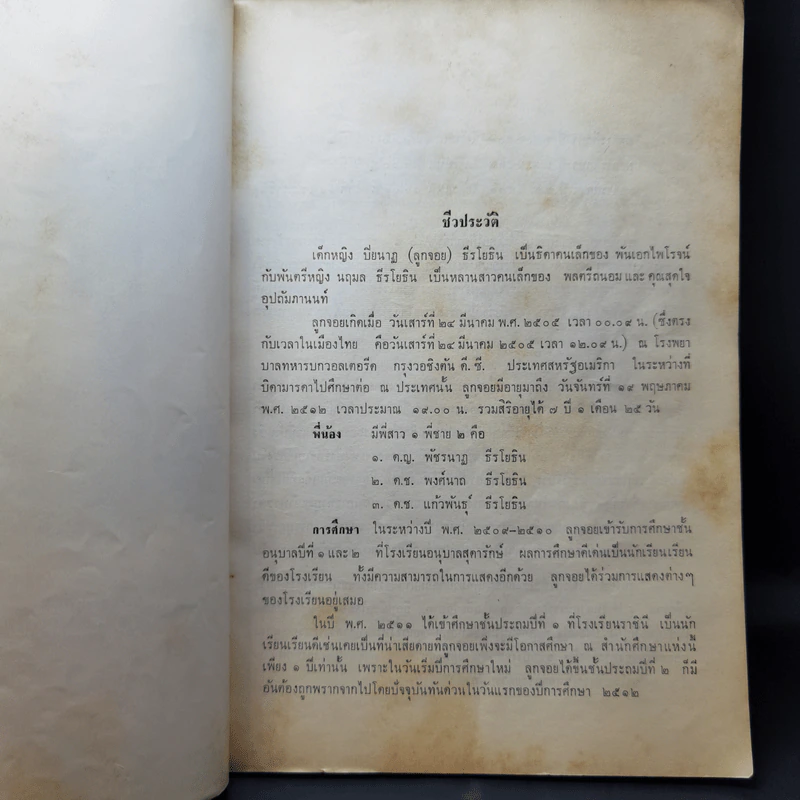 ชีวประวัติ
เด็กหญิง ปิยนาฏ (ลูกจอย) ธีรโยธิน เป็นธิดาคนเล็กของ พันเอกไพโรจน์
กับพันตรีหญิง นฤมล ธีรโยธิน เป็นหลานสาวคนเล็กของ พลตรีถนอม และ คุณสุดใจ
อุปถัมภานนท์
ลูกจอยเกิดเมื่อ วันเสาร์ที่ ๒๔ มีนาคม พ.ศ. ๒๕๐๕ เวลา ๐๐.๐๙ น. (ซึ่งตรง
กับเวลาในเมืองไทย คือวันเสาร์ที่ ๒๔ มีนาคม ๒๕๐๕ เวลา ๑๒.๐๙ น.) ณ โรงพยา
บาลทหารบกวอลเตอรีด กรุงวอชิงตัน ดี. ซี. ประเทศสหรัฐอเมริกา ในระหว่างที่
บิดามารดาไปศึกษาต่อ ณ ประเทศนั้น ลูกจอยมีอายุมาถึง วันจันทร์ที่ ๑๙ พฤษภาคม
พ.ศ. ๒๕๑๒ เวลาประมาณ ๑๙.๐๐ น. รวมสิริอายุได้ ๗ ปี ๑ เดือน ๒๕ วัน
พี่น้อง มีพี่สาว ๑ พี่ชาย ๒ คือ
๑. ด.ญ. พัชรนาฏ ธีรโยธิน
๒. ด.ช. พงศ์นาถ ธีรโยธิน
๓. ด.ช. แก้วพันธุ์ ธีรโยธิน
การศึกษา ในระหว่างปี พ.ศ. ๒๕๐๙-๒๕๑๐ ลูกจอยเข้ารับการศึกษาชั้น
อนุบาลปีที่ ๑ และ ๒ ที่โรงเรียนอนุบาลสุดารักษ์ ผลการศึกษาดีเด่นเป็นนักเรียนเรียน
ดีของโรงเรียน ทั้งมีความสามารถในการแสดงอีกด้วย ลูกจอยได้ร่วมการแสดงต่างๆ
ของโรงเรียนอยู่เสมอ
ในปี พ.ศ. ๒๕๑๑ ได้เข้าศึกษาชั้นประถมปีที่ ๑ ที่โรงเรียนราชินี เป็นนัก
เรียนเรียนดีเช่นเคยเป็นที่น่าเสียดายที่ลูกจอยเพิ่งจะมีโอกาสศึกษา ณ สำนักศึกษาแห่งนี้
เพียง ๑ ปีเท่านั้น เพราะในวันเริ่มปีการศึกษาใหม่ ลูกจอยได้ขึ้นชั้นประถมปีที่ ๒ ก็มี
อันต้องถูกพรากจากไปโดยปัจจุบันทันด่วนในวันแรกของปีการศึกษา ๒๕๑๒